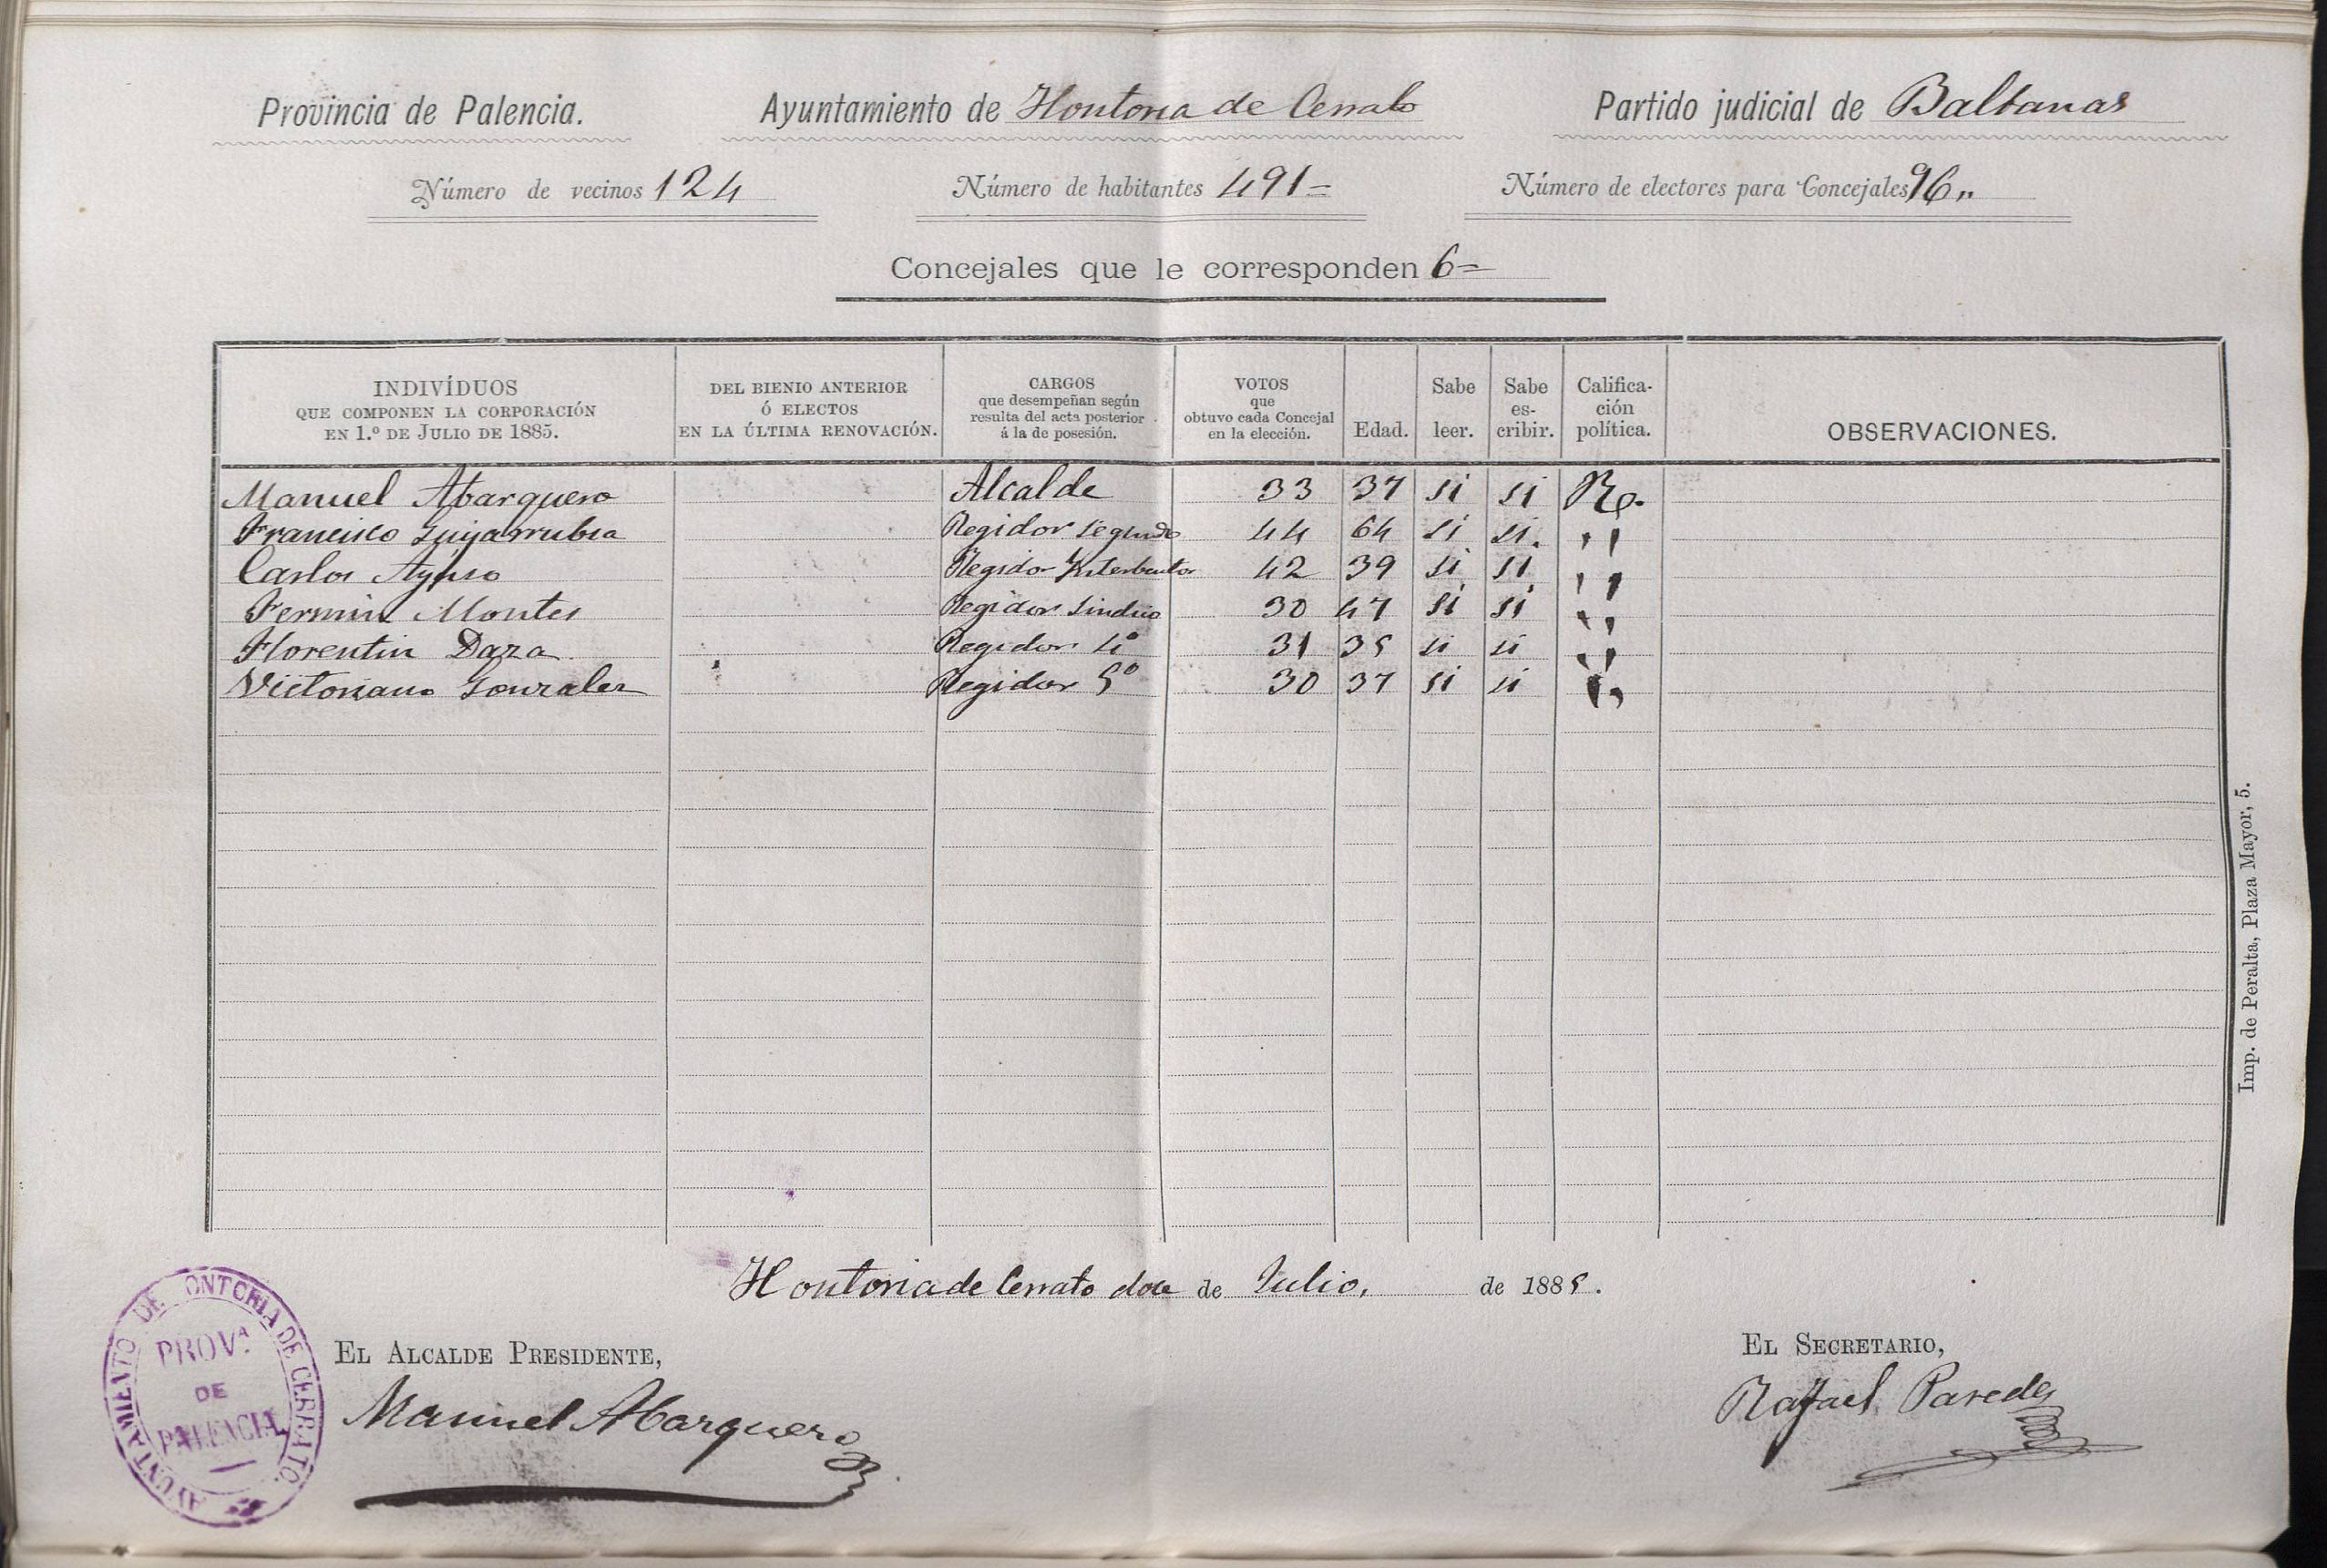 Provincia de Palencia. Ayuntamiento de Hontoria de Cerrato Partido judicial de Baltanas
Número de vecinos 124 Número de habitantes 491= Número de electores para Concejales 96"
Concejales que le corresponden 6=
INDIVÍDUOS QUE COMPONEN LA CORPORACIÓN EN 1.º DE JULIO DE 1885. DEL BIENIO ANTERIOR Ó ELECTOS EN LA ÚLTIMA RENOVACIÓN. CARGOS que desempeñan según resulta del acta posterior á la de posesión. VOTOS que obtuvo cada Concejal en la elección. Edad. Sabe leer. Sabe es-cribir. Califica-ción política. OBSERVACIONES.
Manuel Abarquero Alcalde 33 37 si si
Francisco Guijarrubia Regidor segundo 44 64 si si. "
Carlos Ayuso Regidor Interbentor 42 39 si si "
Fermin Montes Regidor Sindico 30 47 si si "
Florentin Daza Regidor 4º 31 35 si si "
Victoriano Gonzalez Regidor 5º 30 37 si si "
Hontoria de Cerrato doce de Julio, de 1885.
EL ALCALDE PRESIDENTE,
Manuel Abarquero
EL SECRETARIO,
Rafael Paredes
AYUNTAMIENTO DE ONTORIA DE CERRATO.
PROVA.
DE
PALENCIA
Imp. de Peralta, Plaza Mayor, 5.